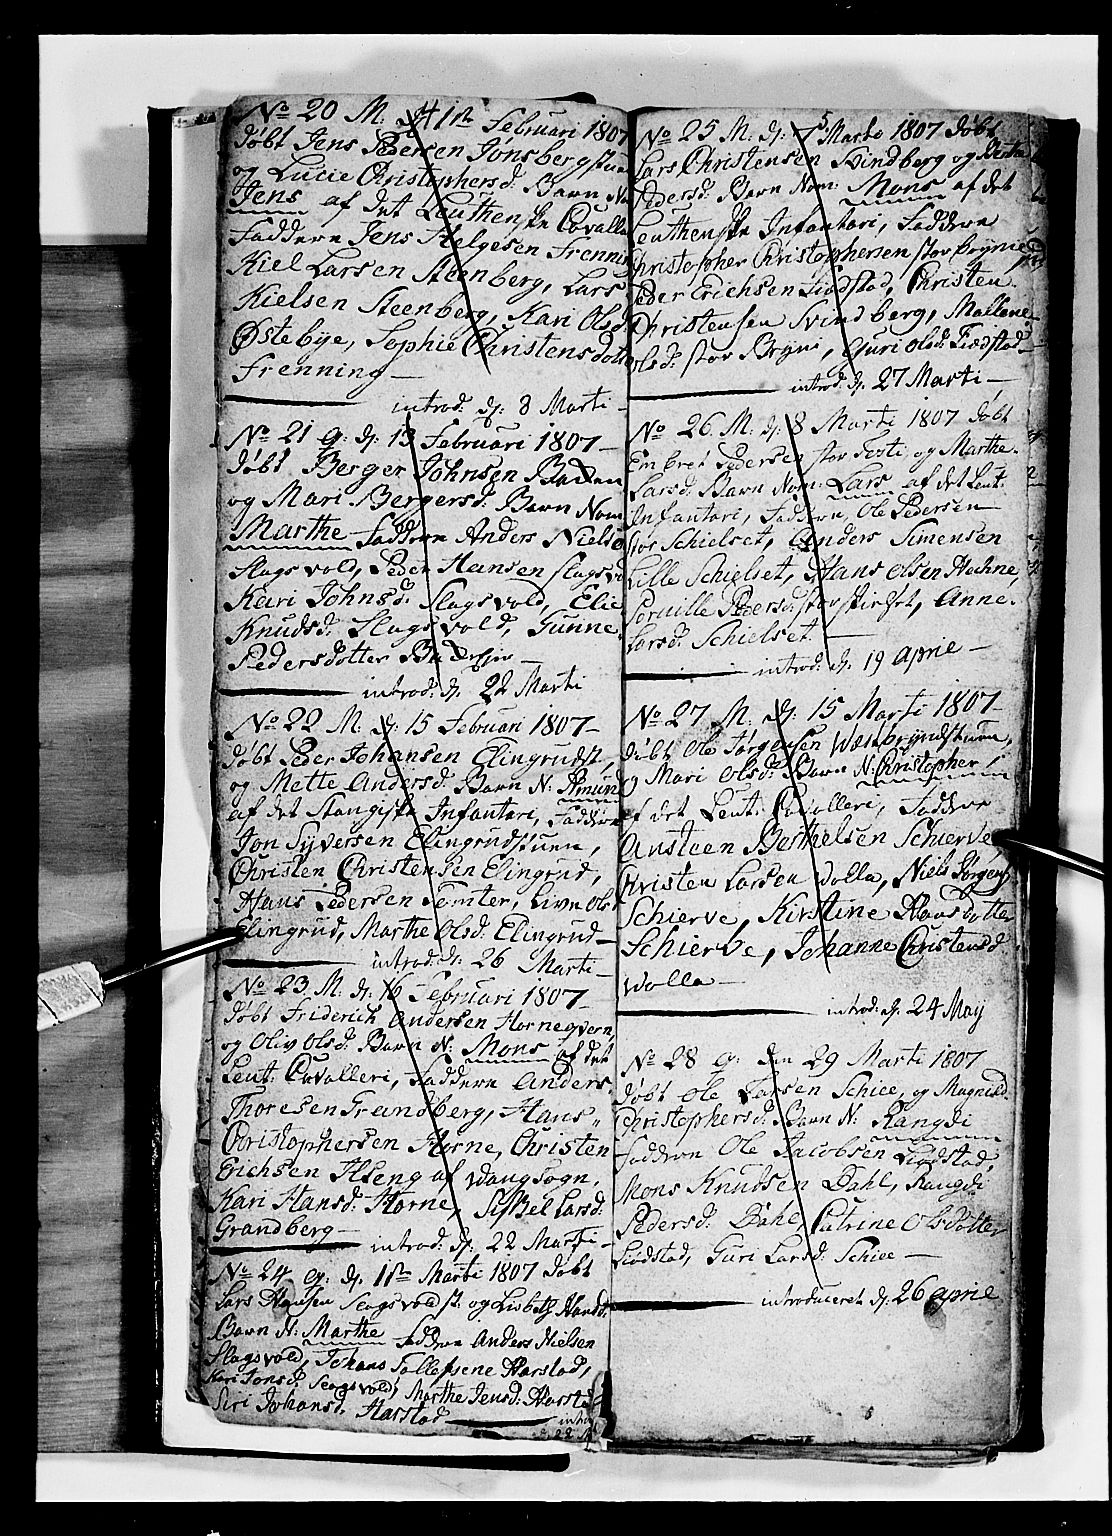 No 20 M: d: 1ste Februari 1807
døbt Jens Pedersen Jonsbergstuen
og Lucie Christophersd: Barn N:
Jens af det Leuthenske Cavalle
Faddere Jens Helgesen Frenning
Kiel Larsen Steenberg, Lars
Kielsen Steenberg, Kari Olsd:
Østebye, Sophie Christensdotter
Frenning —
introd: d: 8 Marti —
No 21 q: d: 13 Februari 1807 —
døbt Berger Johnsen Badden
og Mari Bergersd: Barn Nom
Marthe Faddere Anders Niels
Slagsvold, Peder Hansen Slagsvo
Kari Johnsd: Slagsvold, Elie
Knudsd: Slagsvold, Gunne
Pedersdotter —
introd: d: 22 Marti
No 22 M: d: 15 Februari 1807 —
døbt Peder Johansen Elingrudst,
og Mette Andersd: Barn N: Amun
af det Stangiske Infantari, Faddere
Jon Syversen Elingrudstuen,
Christen Christensen Elingrud,
Hans Pedersen Temter, Live Ols
Elingrud, Marthe Olsd: Elingrud —
introd: d: 26 Marti —
No 23 M: d: 16 Februari 1807 —
døbt Friderich Andersen Horneqvern
og Oliv Olsd: Barn N: Mons af det
Leut: Cavalleri, Faddere Anders
Thoresen Grandberg, Hans
Christophersen Horne, Christen
Erichsen Ilseng af Vangsogn,
Kari Hansd: Horne, Sissel Larsd:
Grandberg —
introd: d: 22 Marti —
No 24 q: d: 1ste Marti 1807 døbt
Lars Hansen Slagsvoldst: og Lisbeth Hansd:
Barn N: Marthe Faddere Anders Nielsen
Slagsvold, Johans Tollefsene Harstad,
Kari Jonsd: Slagsvold, Marthe Jensd: Harstad
Siri Johansd: Harstad — introd
d: 22 M
No 25 M: d: 5 Marti 1807 døbt
Lars Christensen Svindberg og
Pedersd: Barn Nom: Mons af det
Leuthenske Infantari, Faddere
Christopher Christophersen stor Brynie
Peder Erichsen Fiødstad, Christen
Christensen Svindberg, Mallene
Olsd: stor Bryni, Guri Olsd: Fiødstad —
introd: d: 27 Marti —
No 26 M: d: 8 Marti 1807 døbt
Embret Pedersen stor Festi, og Marthe
Larsd: Barn Nom: Lars af det Leut:
Infantari, Faddere, Ole Pedersen
stor Schielset, Anders Simensen
Lille Schielset, Hans Olsen Hechne,
Pernille Pedersd: stor Schielset, Anne
Larsd: Schielset —
introd: d: 19 Aprie —
No 27 M: d: 15 Marti 1807 —
døbt Ole Jørgensen Westbryndstuen,
og Mari Olsd: Barn N: Christopher,
af det Leut: Cavalleri, Faddere
Austeen Berthelsen Schierve,
Christen Larsen Wolla, Niels Jørgens
Schierve, Kirstine Hansdotter
Schierve, Johanne Christensd
Wolla —
introd: d: 24 May
No 28 q: den 29 Marti 1807
døbt Ole Larsen Schiee, og Magnild
Christophersd: Barn N: Rangdi
Faddere Ole Jacobsen Fiødstad,
Mons Knudsen Dahl, Rangdi
Pedersd: Dahl, Catrine Olsdotter
Fiødstad, Guri Larsd: Schiee —
introduceret d: 26 Aprie